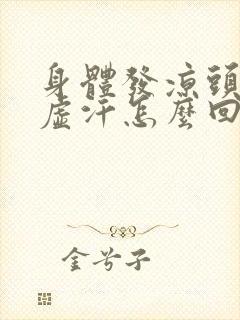 身體發涼頭
虛汗怎麼回
金兮子